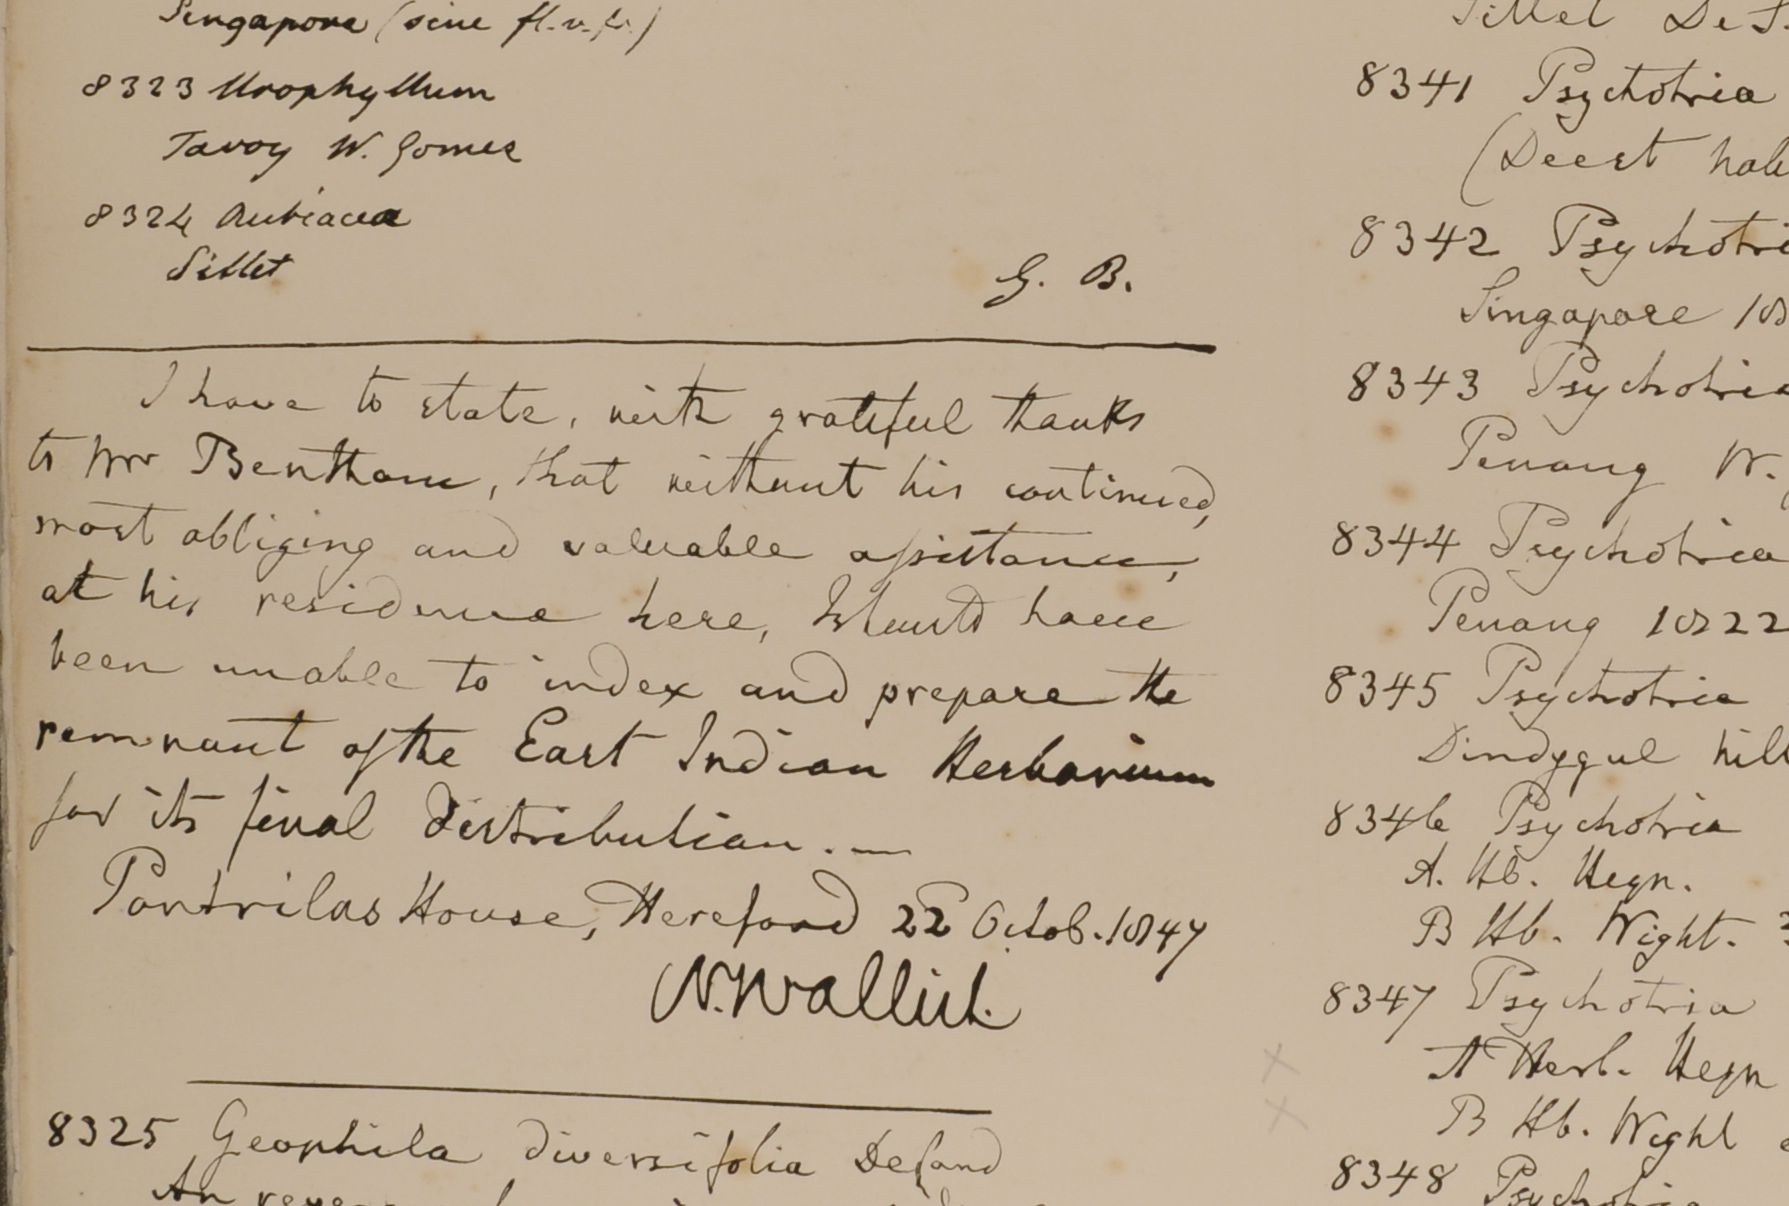 Singapore (sine fl. v. fr.)
8323 Urophyllum
Tavoy W. Gomez
8324 Rubiacea
Sillet
G. B.
I have to state, with grateful thanks
to Mr Bentham, that without his continued,
most obliging and valuable assistance,
at his residence here, I should have
been unable to index and prepare the
remnant of the East Indian Herbarium
for its final distribution. —
Pontrilas House, Hereford 22d Octob. 1847
N. Wallich.
8325 Geophila diversifolia DeCand
An
Sillet De S.
8341 Psychotria
(Deest
8342 Psychotri
Singapore 18
8343 Psychotria
Penang W.
8344 Psychotria
Penang 1822
8345 Psychotria
Dindygul hill
8346 Psychotria
A. Hb. Heyn.
B Hb. Wight.
8347 Psychotria
A Herb. Heyn
B Hb. Wight
8348 Psychotria